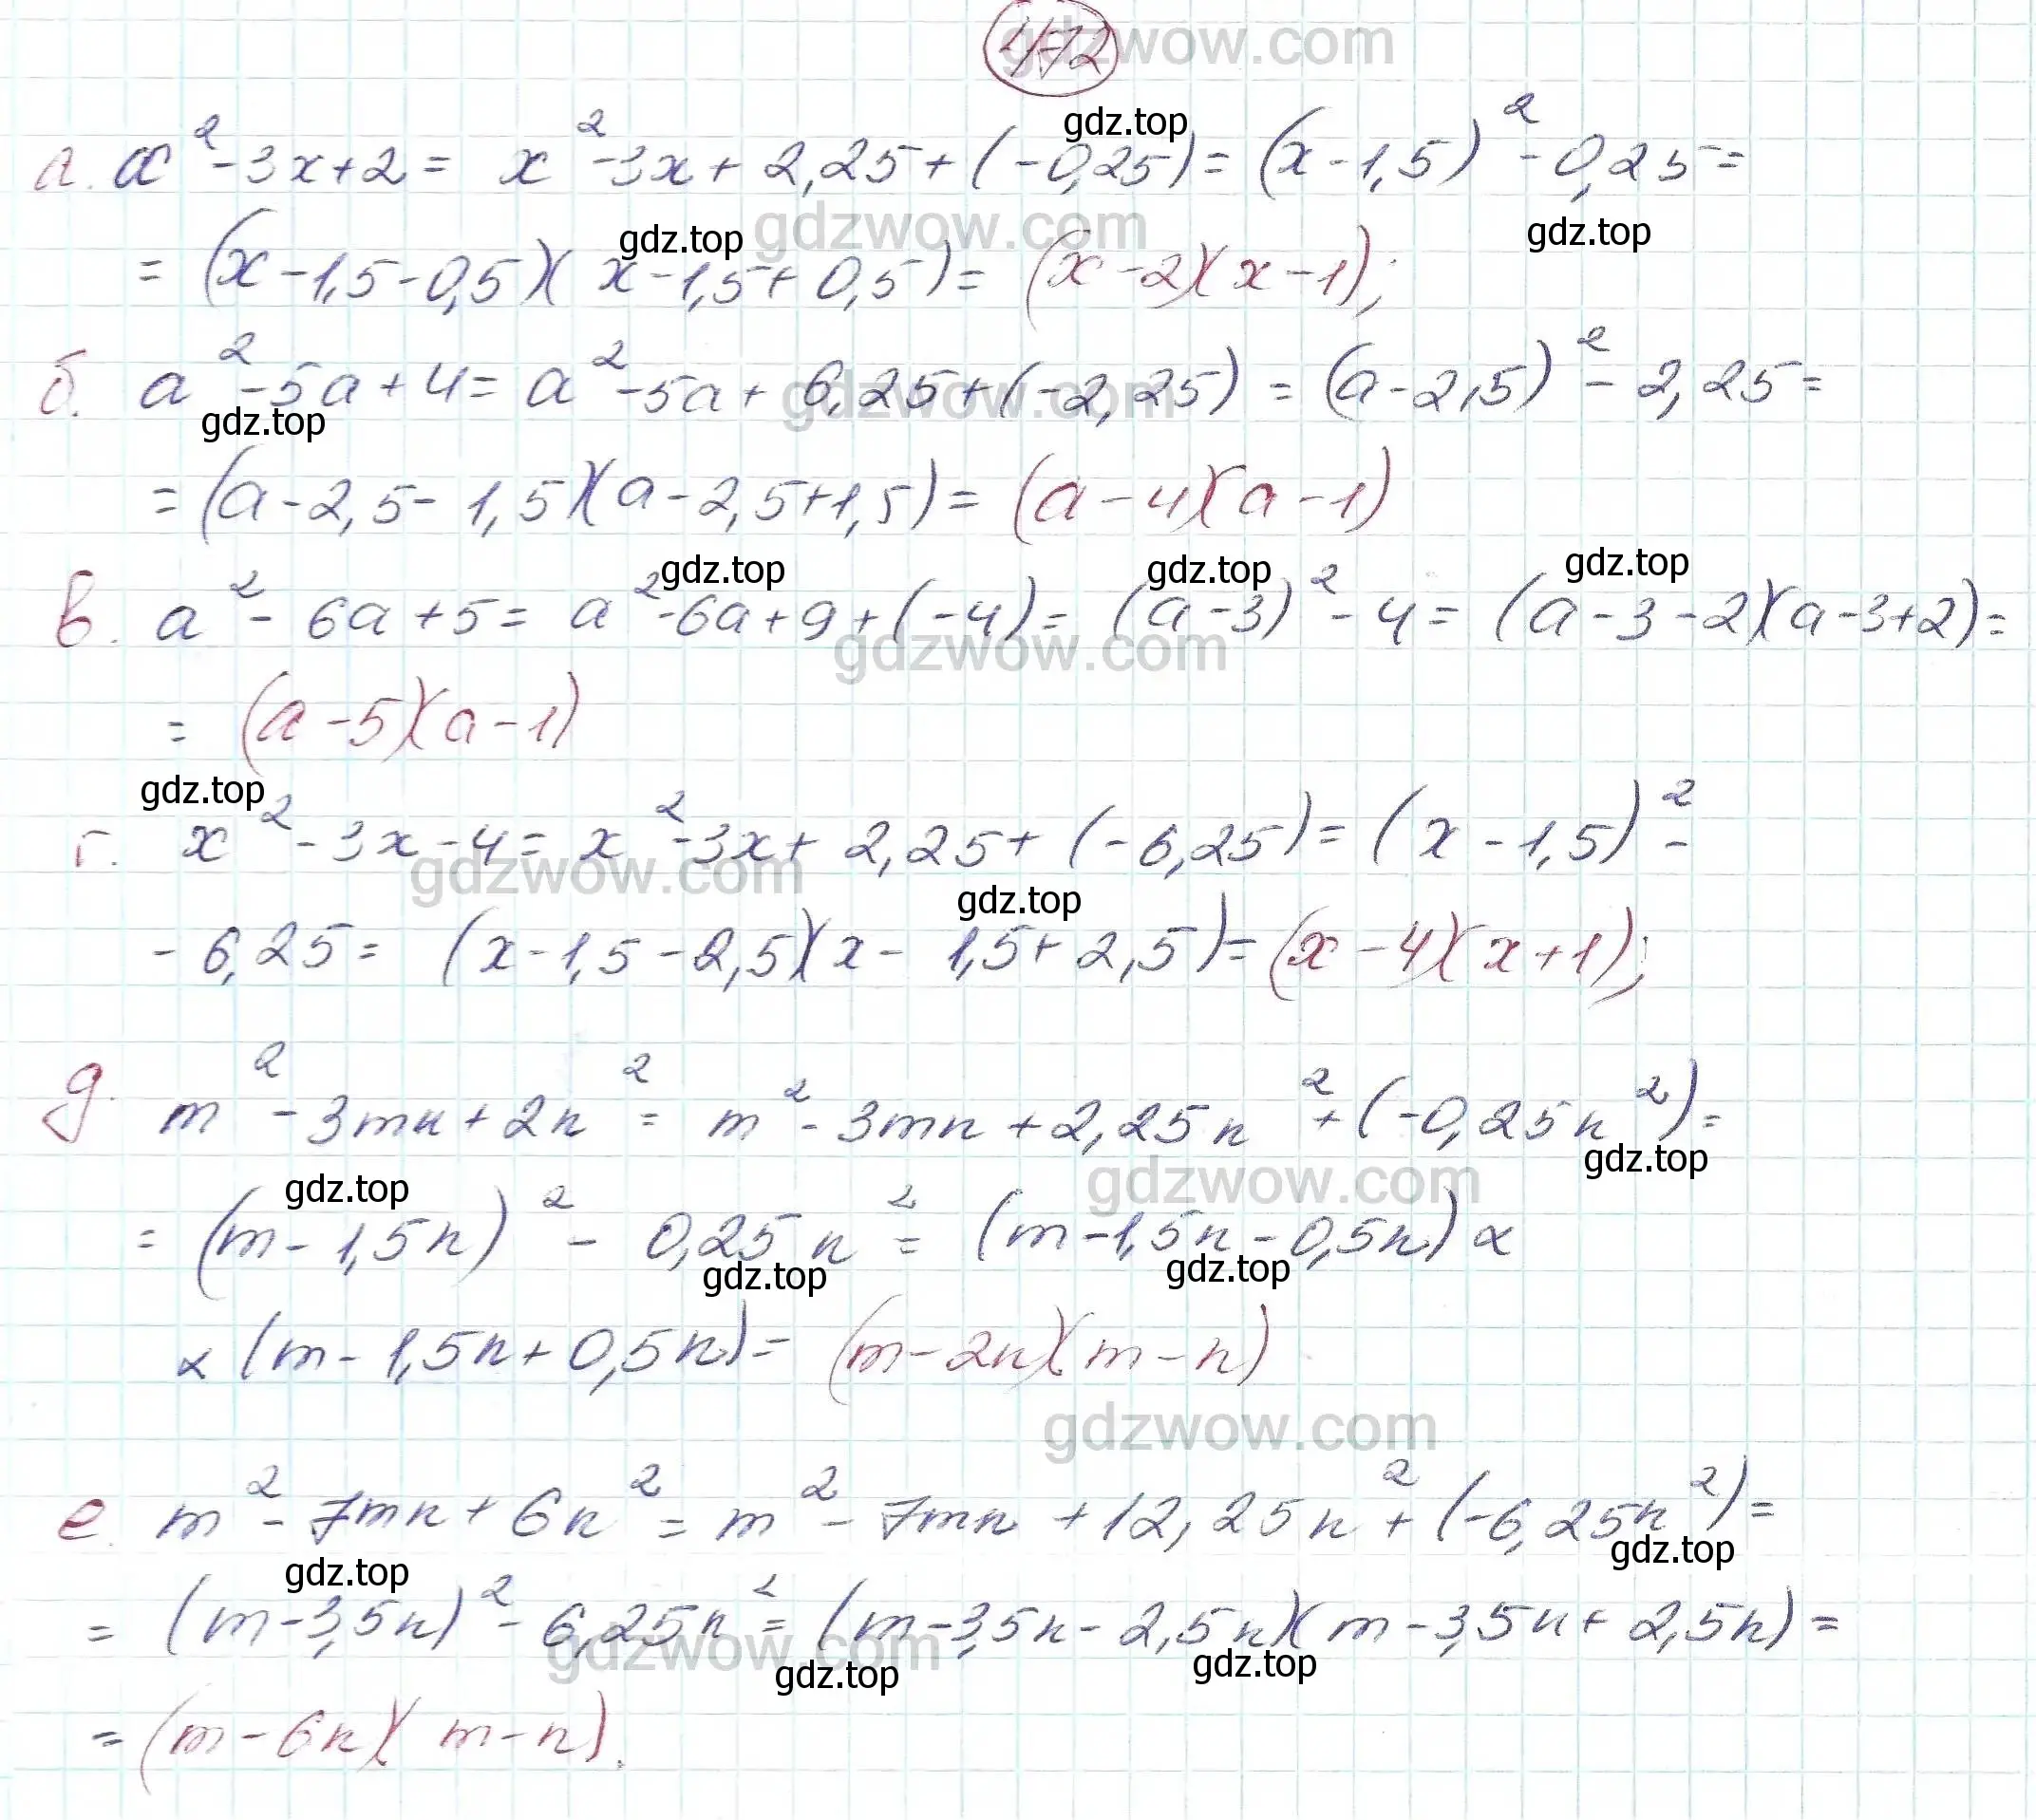 472
gdzwow.com
gdz.top
а. x² - 3x + 2 = x² - 3x + 2,25 + (-0,25) = (x - 1,5)² - 0,25 =
gdz.top gdzwow.com gdz.top
= (x - 1,5 - 0,5)(x - 1,5 + 0,5) = (x - 2)(x - 1);
б. a² - 5a + 4 = a² - 5a + 6,25 + (-2,25) = (a - 2,5)² - 2,25 =
gdz.top gdzwow.com
= (a - 2,5 - 1,5)(a - 2,5 + 1,5) = (a - 4)(a - 1)
gdz.top gdz.top gdz.top
в. a² - 6a + 5 = a² - 6a + 9 + (-4) = (a - 3)² - 4 = (a - 3 - 2)(a - 3 + 2) =
gdzwow.com
= (a - 5)(a - 1)
gdz.top
г. x² - 3x - 4 = x² - 3x + 2,25 + (-6,25) = (x - 1,5)² -
gdzwow.com gdz.top
- 6,25 = (x - 1,5 - 2,5)(x - 1,5 + 2,5) = (x - 4)(x + 1);
д. m² - 3mn + 2n² = m² - 3mn + 2,25n² + (-0,25n²) =
gdz.top gdzwow.com gdz.top
= (m - 1,5n)² - 0,25n² = (m - 1,5n - 0,5n) ×
gdz.top gdz.top
× (m - 1,5n + 0,5n) = (m - 2n)(m - n)
gdzwow.com
е. m² - 7mn + 6n² = m² - 7mn + 12,25n² + (-6,25n²) =
gdz.top gdz.top
= (m - 3,5n)² - 6,25n² = (m - 3,5n - 2,5n)(m - 3,5n + 2,5n) =
gdzwow.com gdz.top gdz.top
= (m - 6n)(m - n).